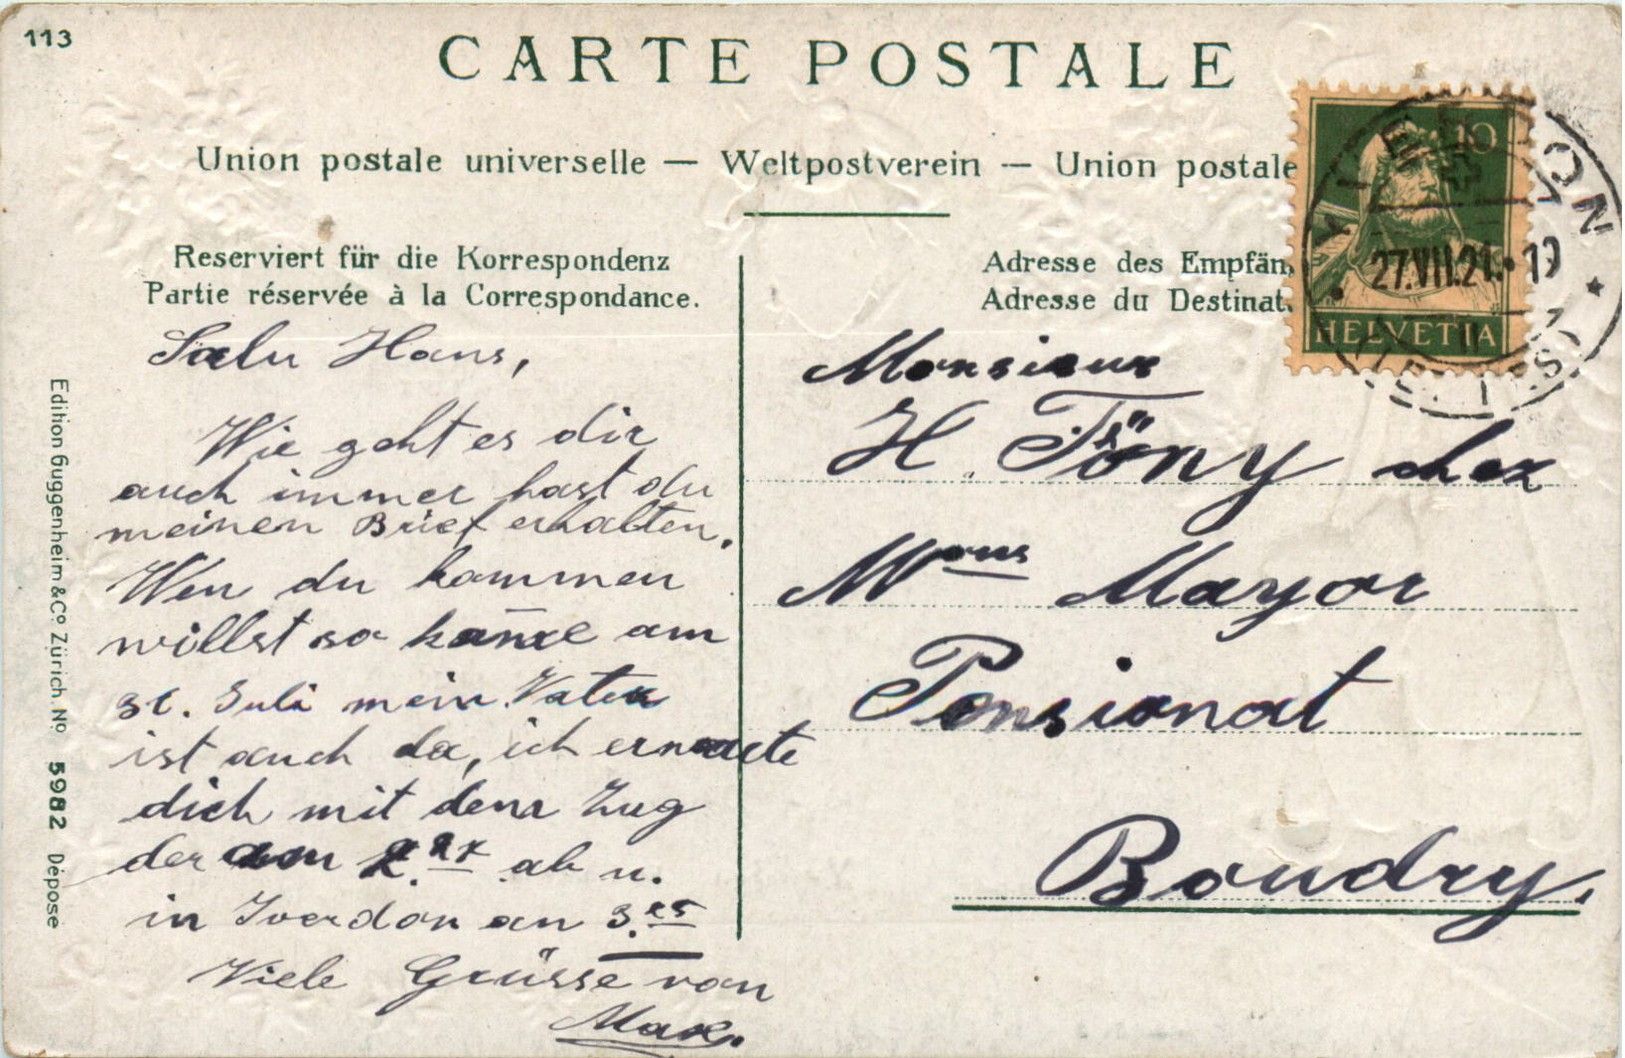 113
CARTE POSTALE
Union postale universelle — Weltpostverein — Union postale
Reserviert für die Korrespondenz
Partie réservée à la Correspondance.
Adresse des Empfän
Adresse du Destinat
10
HELVETIA
27.VII.21. 19
Edition Guggenheim & Co Zürich. No 5982 Déposé
Salu Hans,
Wie geht es dir
auch immer hast du
meinen Brief erhalten.
Wen du kommen
willst so am
31. Juli mein Vater
ist auch da, ich erwarte
dich mit dem Zug
der ab u.
in Iverdon an 3.25
Viele Grüsse von
Max.
Monsieur
H. Töny chez
Mons Mayor
Pensionat
Boudry.